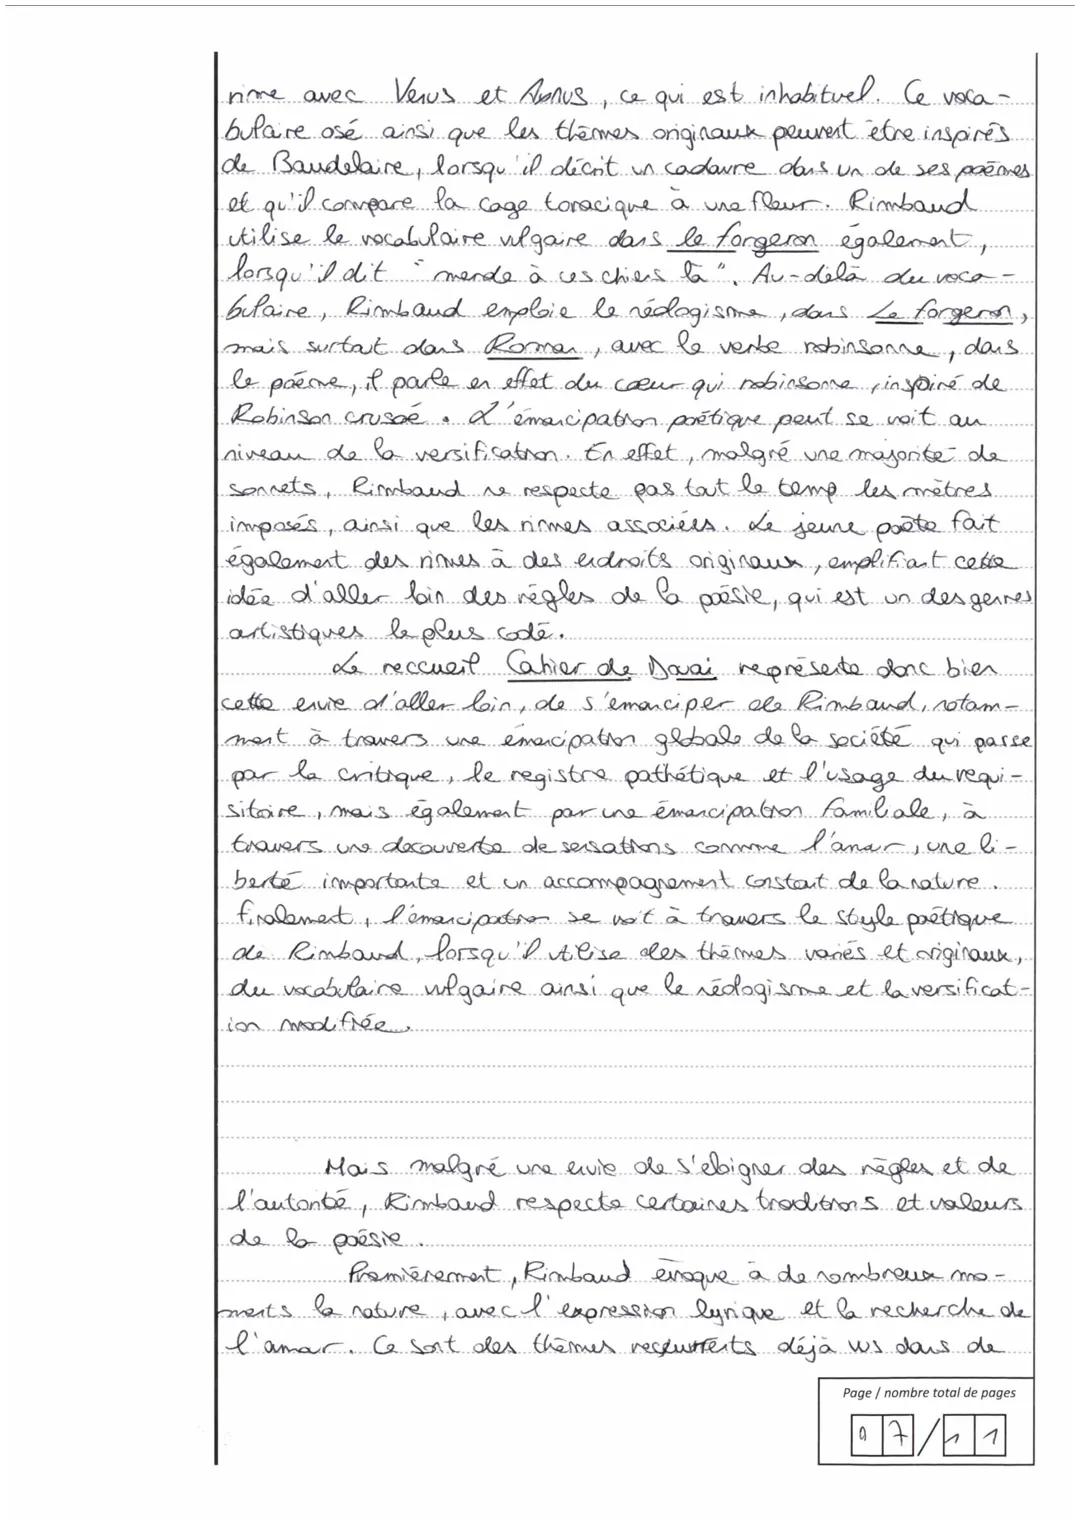 rime avec Venus et Anus, ce qui est inhabituel. Ce voca-
bulaire osé ainsi que les thèmes originaux peuvent être inspirés
de Baudelaire, lorsqu'il décrit un cadavre dans un de ses poèmes
et qu'il compare la cage toracique à une fleur. Rimbaud
utilise le vocabulaire vulgaire dans le forgeron également,
lorsqu'il dit "merde à ces chiens là". Au-delà du voca-
bulaire, Rimbaud emploie le néologisme, dans Le forgeron,
mais surtout dans Roman, avec le verbe robinsonne, dans
le poème, il parle en effet du cœur qui robinsonne, inspiré de
Robinson crusoé. L'émancipation poétique peut se voit au
niveau de la versification. En effet, malgré une majorité de
sonnets, Rimbaud ne respecte pas tout le temp les mètres
imposés, ainsi que les rimes associées. Le jeune poète fait
également des rimes à des endroits originaux, emplifiant cette
idée d'aller loin des règles de la poésie, qui est un des genres
artistiques le plus codé.
Le reccueil Cahier de Douai représente donc bien
cette envie d'aller loin, de s'émanciper de Rimbaud, notam-
ment à travers une émancipation globale de la société qui passe
par la critique, le registre pathétique et l'usage du requi-
sitoire, mais également par une émancipation familiale, à
travers une découverte de sensations comme l'amour, une li-
berté importante et un accompagnement constant de la nature.
finalement, l'émancipation se voit à travers le style poétique
de Rimbaud, lorsqu'il utilise des thèmes variés et originaux,
du vocabulaire vulgaire ainsi que le néologisme et la versificat-
ion modifiée.
Mais malgré une envie de s'eloigner des règles et de
l'autorité, Rimbaud respecte certaines traditions et valeurs
de la poésie.
Premièrement, Rimbaud évoque à de nombreux mo-
ments la nature, avec l'expression lyrique et la recherche de
l'amour. Ce sont des thèmes reccurrents déjà vus dans de
Page / nombre total de pages
07/11